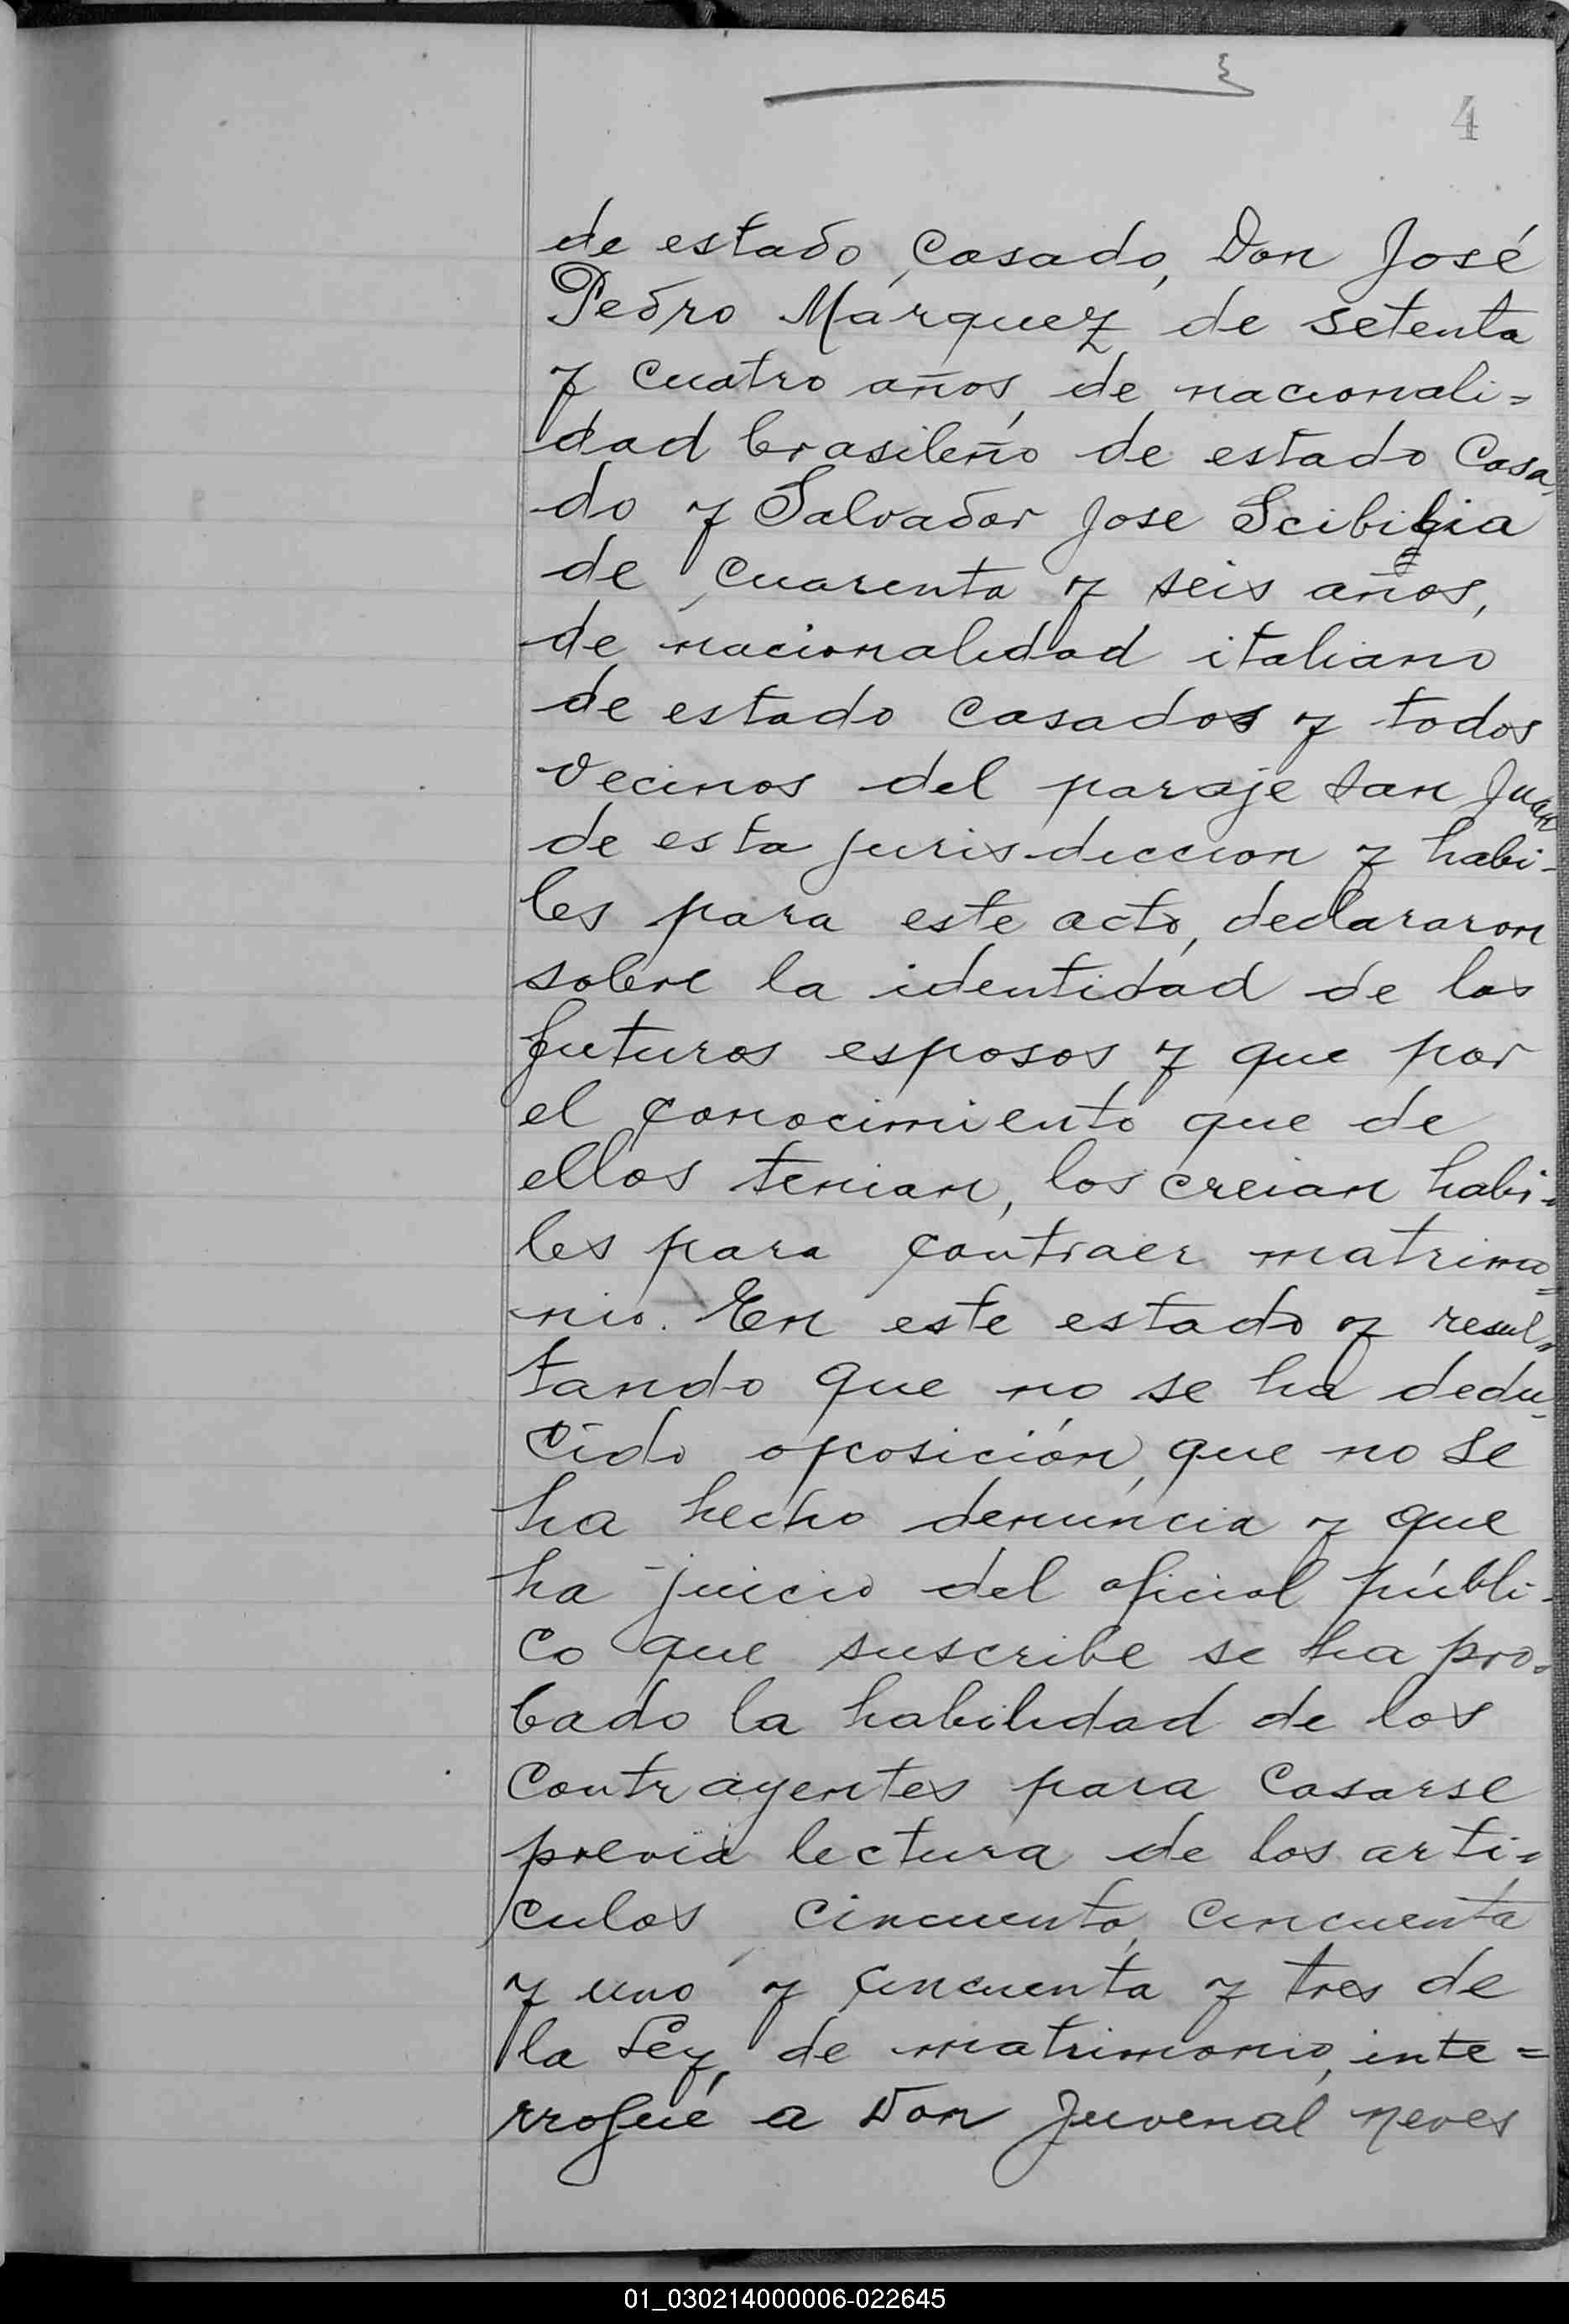 4
de estado casado, Don José
Pedro Marquez de setenta
y cuatro años, de nacionali=
dad brasileño de estado Casa
do y Salvador Jose Scibilia
de cuarenta y seis años,
de nacionalidad italiano
de estado casados y todos
vecinos del paraje San Juan
de esta jurisdiccion y habi-
les para este acto, declararon
sobre la identidad de los
futuros esposos y que por
el conocimiento que de
ellos tenian, los creian habi-
les para contraer matrimo=
nio. En este estado y resul=
tando que no se ha dedu-
cido oposición, que no se
ha hecho denuncia y que
ha juicio del oficial públi-
co que suscribe se ha pro=
bado la habilidad de los
Contrayentes para casarse
previa lectura de los arti=
culos cincuenta, cincuenta
y uno y cincuenta y tres de
la Ley, de matrimonio, inte=
rrogué a Don Juvenal Neves
01_030214000006-022645